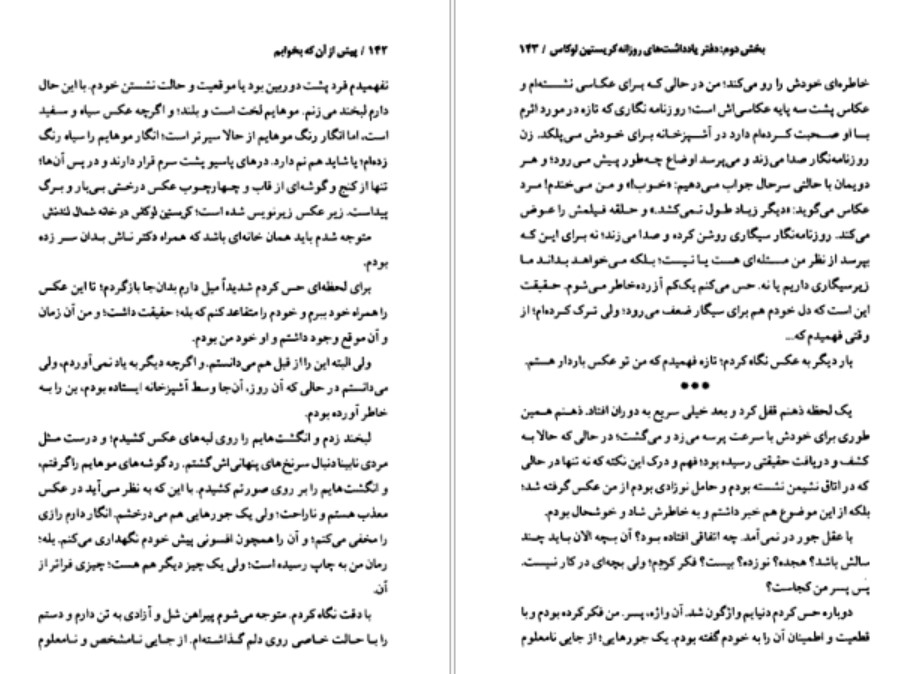 ۱۴۲ / پیش از آن که بخوابم
تفهمیدم فرد پشت دوربین بود یا موقعیت و حالت نشستن خودم. با این حال
دارم لبخند می‌زنم. موهایم لخت است و بلند؛ و اگرچه عکس سیاه و سفید
است، اما انگار رنگ موهایم از حالا سیرتر است؛ انگار موهایم را سیاه رنگ
زده‌ام؛ یا شاید هم نم دارد. درهای پاسیو پشت سرم قرار دارند و در پس آن‌ها؛
تنها از کنج و گوشه‌ای از قاب و چهارچوب عکس درختی بی‌بار و برگ
پیداست. زیر عکس زیرنویس شده است؛ کریستین لوکاس در خانه شمال لندنش
متوجه شدم باید همان خانه‌ای باشد که همراه دکتر ناش بدان سر زده
بودم.
برای لحظه‌ای حس کردم شدیداً میل دارم بدان‌جا بازگردم؛ تا این عکس
را همراه خود ببرم و خودم را متقاعد کنم که بله؛ حقیقت داشت؛ و من آن زمان
و آن موقع وجود داشتم و او خود من بودم.
ولی البته این را از قبل هم می‌دانستم. و اگرچه دیگر به یاد نمی‌آوردم، ولی
می‌دانستم در حالی که آن روز، آن‌جا وسط آشپزخانه ایستاده بودم، بن را به
خاطر آورده بودم.
لبخند زدم و انگشت‌هایم را روی لبه‌های عکس کشیدم؛ و درست مثل
مردی نابینا دنبال سرنخ‌های پنهانی‌اش گشتم. رد گوشه‌های موهایم را گرفتم،
و انگشت‌هایم را بر روی صورتم کشیدم. با این که به نظر می‌آید در عکس
معذب هستم و ناراحت؛ ولی یک جورهایی هم می‌درخشم. انگار دارم رازی
را مخفی می‌کنم؛ و آن را همچون افسونی پیش خودم نگهداری می‌کنم. بله؛
رمان من به چاپ رسیده است؛ ولی یک چیز دیگر هم هست؛ چیزی فراتر از
آن.
با دقت نگاه کردم. متوجه می‌شوم پیراهن شل و آزادی به تن دارم و دستم
را با حالت خاصی روی دلم گذاشته‌ام. از جایی نامشخص و نامعلوم
بخش دوم: دفتر یادداشت‌های روزانه کریستین لوکاس / ۱۴۳
خاطره‌ای خودش را رو می‌کند؛ من در حالی که برای عکاسی نشسته‌ام و
عکاس پشت سه پایه عکاسی‌اش است؛ روزنامه نگاری که تازه در مورد اثرم
با او صحبت کرده‌ام دارد در آشپزخانه برای خودش می‌پلکد. زن
روزنامه‌نگار صدا می‌زند و می‌پرسد اوضاع چه‌طور پیش می‌رود؛ و هر
دویمان با حالتی سرحال جواب می‌دهیم: «خوب!» و من می‌خندم! مرد
عکاس می‌گوید: «دیگر زیاد طول نمی‌کشد.» و حلقه فیلمش را عوض
می‌کند. روزنامه‌نگار سیگاری روشن کرده و صدا می‌زند؛ نه برای این که
بپرسد از نظر من مسئله‌ای هست یا نیست؛ بلکه می‌خواهد بداند ما
زیرسیگاری داریم یا نه. حس می‌کنم یک‌کم آزرده‌خاطر می‌شوم. حقیقت
این است که دل خودم هم برای سیگار ضعف می‌رود؛ ولی ترک کرده‌ام؛ از
وقتی فهمیدم که...
بار دیگر به عکس نگاه کردم؛ تازه فهمیدم که من تو عکس باردار هستم.
●●●
یک لحظه ذهنم قفل کرد و بعد خیلی سریع به دوران افتاد. ذهنم همین
طوری برای خودش با سرعت پرسه می‌زد و می‌گشت؛ در حالی که حالا به
کشف و دریافت حقیقتی رسیده بود؛ فهم و درک این نکته که نه تنها در حالی
که در اتاق نشیمن نشسته بودم و حامل نوزادی بودم از من عکس گرفته شد؛
بلکه از این موضوع هم خبر داشتم و به خاطرش شاد و خوشحال بودم.
با عقل جور در نمی‌آمد. چه اتفاقی افتاده بود؟ آن بچه الان باید چند
سالش باشد؟ هجده؟ نوزده؟ بیست؟ فکر کردم؛ ولی بچه‌ای در کار نیست.
پس پسر من کجاست؟
دوباره حس کردم دنیایم واژگون شد. آن واژه، پسر. من فکر کرده بودم و با
قطعیت و اطمینان آن را به خودم گفته بودم. یک جورهایی؛ از جایی نامعلوم